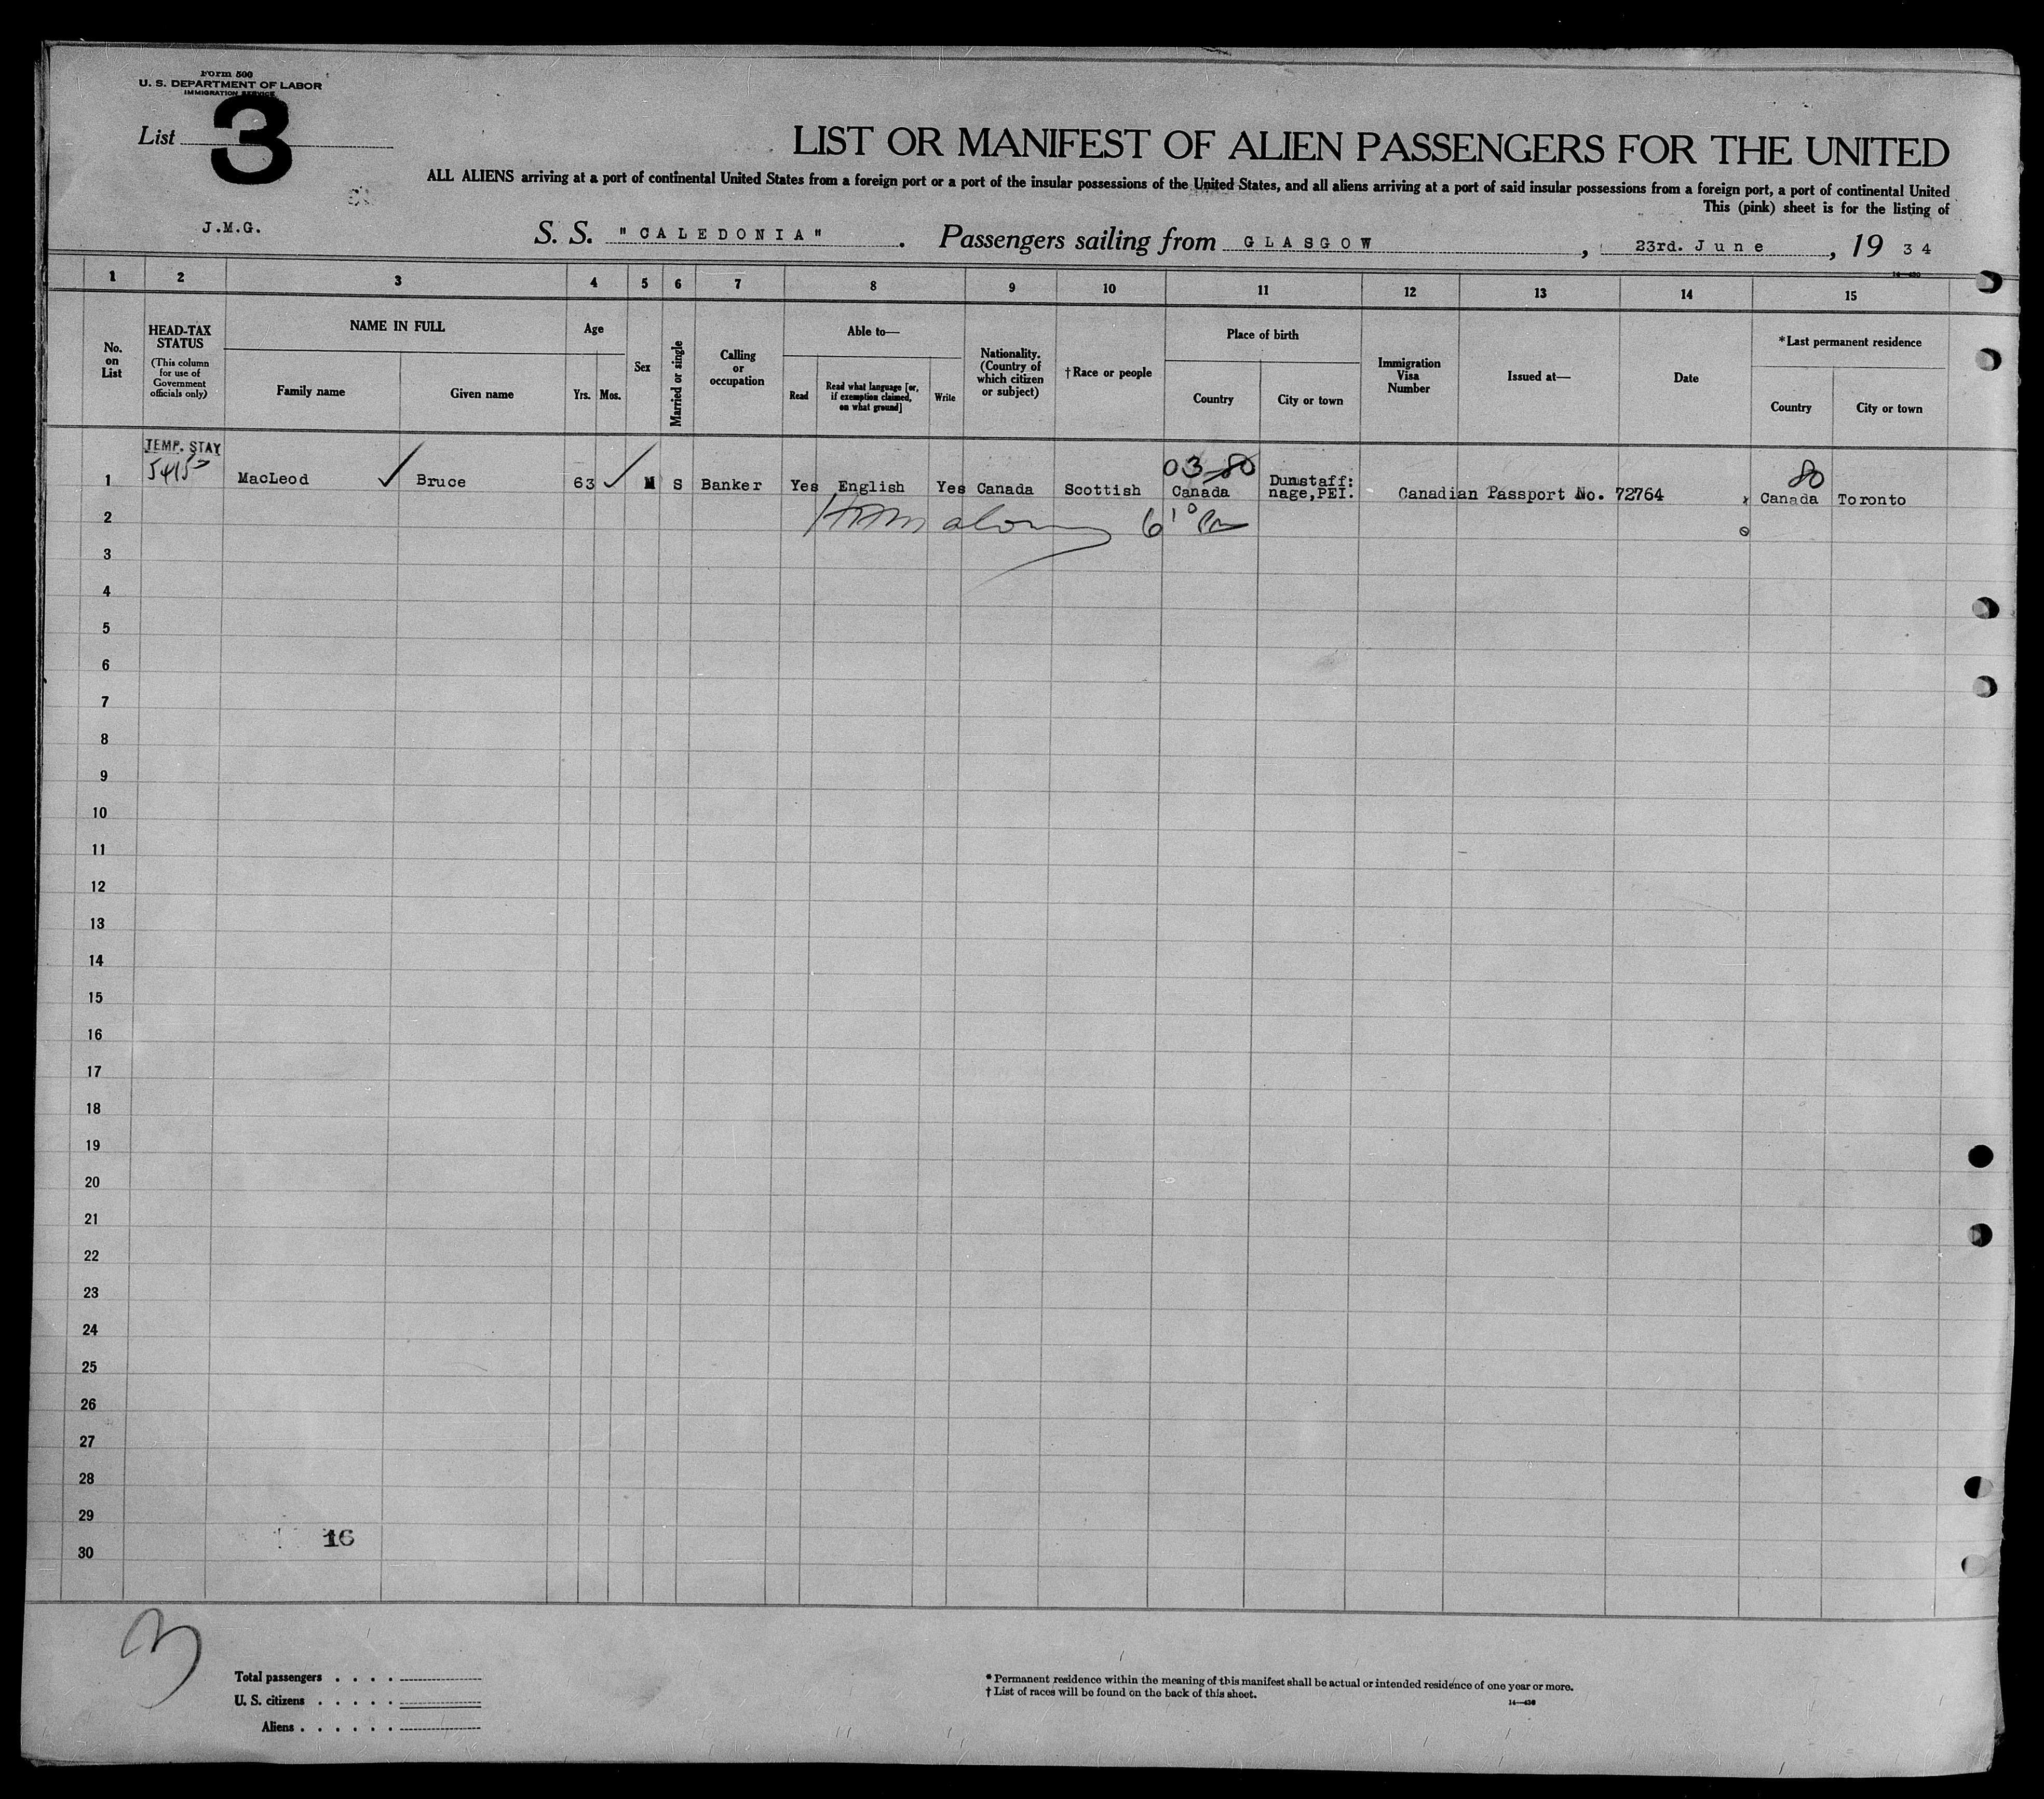 Form 500
U. S. DEPARTMENT OF LABOR
IMMIGRATION SERVICE
List 3
LIST OR MANIFEST OF ALIEN PASSENGERS FOR THE UNITED
ALL ALIENS arriving at a port of continental United States from a foreign port or a port of the insular possessions of the United States, and all aliens arriving at a port of said insular possessions from a foreign port, a port of continental United
This (pink) sheet is for the listing of
J.M.G.
S. S. "CALEDONIA". Passengers sailing from GLASGOW, 23rd. June, 1934
1 2 3 4 5 6 7 8 9 10 11 12 13 14 15
No. on List
HEAD-TAX STATUS
(This column for use of Government officials only)
NAME IN FULL
Family name
Given name
Age
Yrs. Mos.
Sex
Married or single
Calling or occupation
Able to—
Read
Read what language [or, if exemption claimed, on what ground]
Write
Nationality. (Country of which citizen or subject)
†Race or people
Place of birth
Country
City or town
Immigration Visa Number
Issued at—
Date
*Last permanent residence
Country
City or town
TEMP. STAY
03-80
80
1 MacLeod Bruce 63 M S Banker Yes English Yes Canada Scottish Canada Dunstaff: nage,PEI. Canadian Passport No. 72764 Canada Toronto
2
3
4
5
6
7
8
9
10
11
12
13
14
15
16
17
18
19
20
21
22
23
24
25
26
27
28
29
16
30
3
Total passengers . . . .
U. S. citizens . . . . .
Aliens . . . . . .
* Permanent residence within the meaning of this manifest shall be actual or intended residence of one year or more.
† List of races will be found on the back of this sheet.
14—430